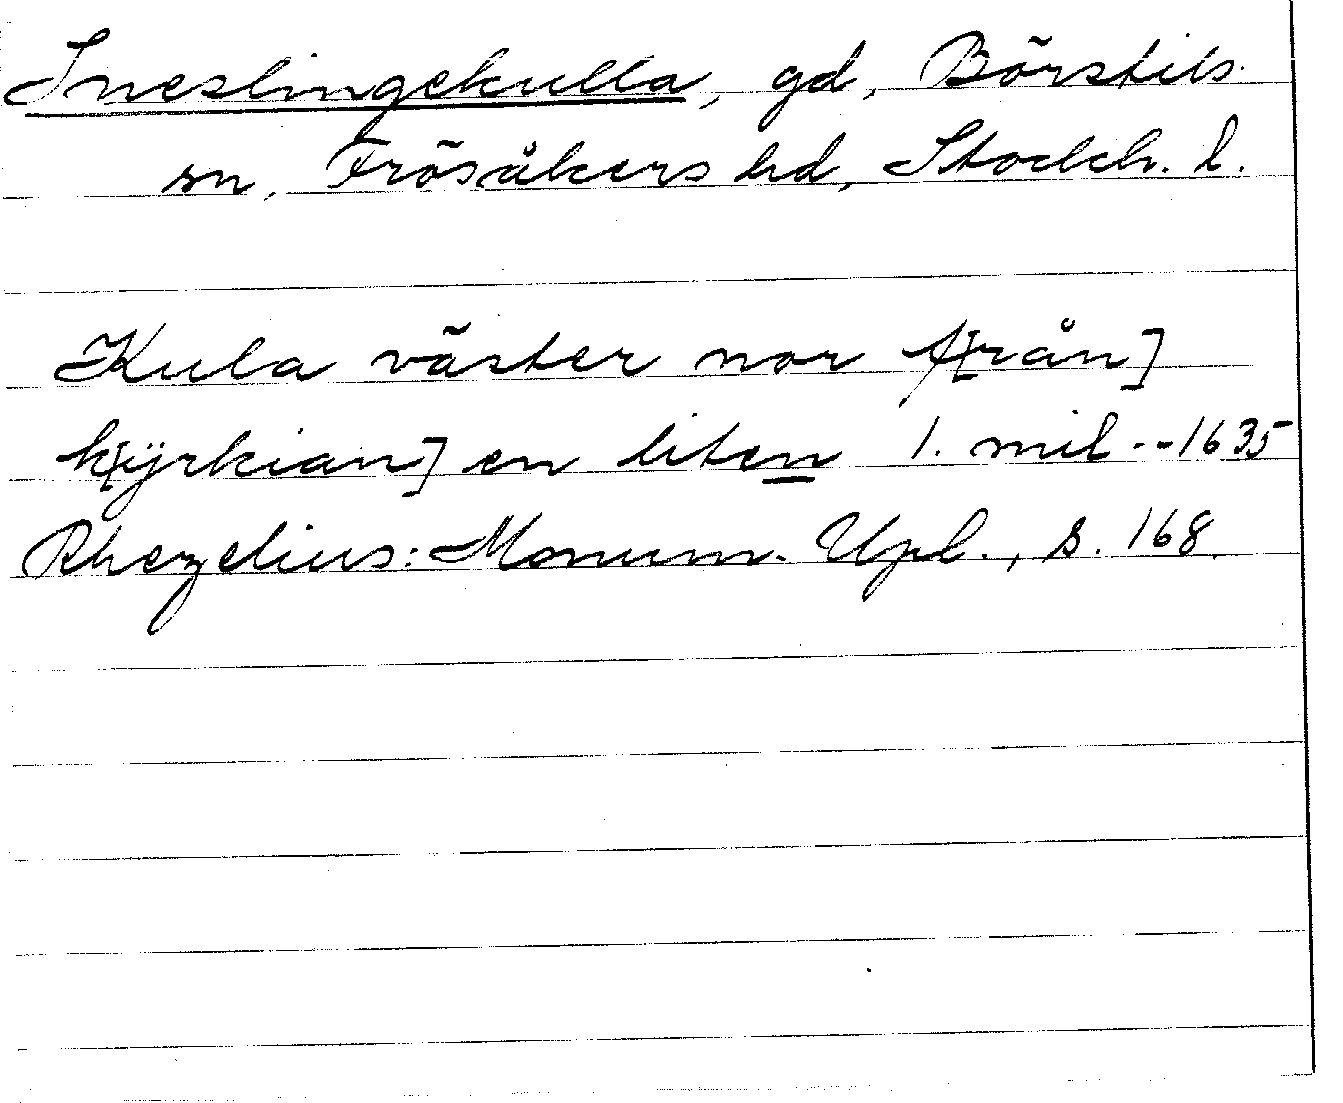 Sneslingekulla, gd, Börstils
sn, Frösåkers hd, Stockh. l.
Kula väster nor f[rån]
k[ÿrkian] en liten 1. mil -- 1635
Rhezelius: Monum. Upl., s. 168.